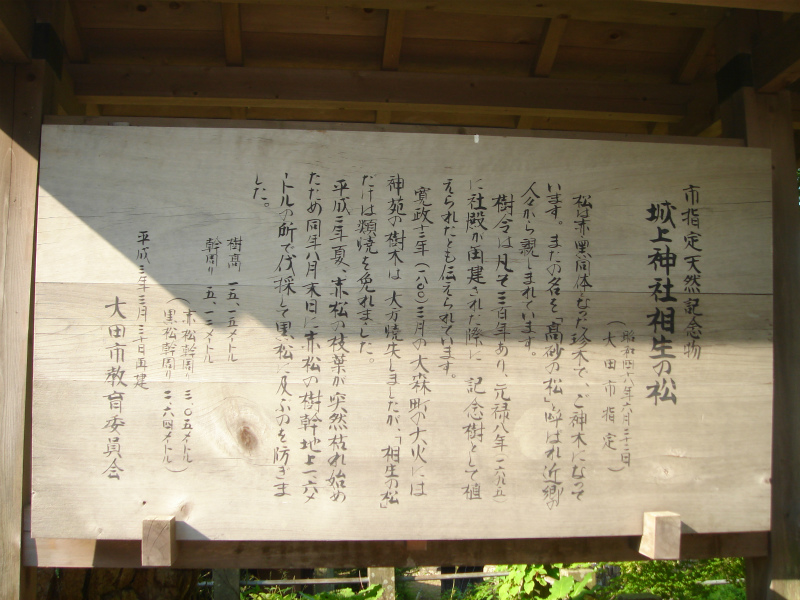 市指定天然記念物
城上神社相生の松
（昭和四十八年六月二十二日
大田市指定）
松は赤、黒同体となった珍木で、ご神木になって
います。またの名を「高砂の松」と呼ばれ近郷の
人々から親しまれています。
樹令は凡そ三百年あり、元禄八年（一六九五）
に社殿が再建された際に、記念樹として植
えられたとも伝えられています。
寛政十二年（一八〇〇）三月の大森町の大火には
神苑の樹木は、大方焼失しましたが、「相生の松」
だけは類焼を免れました。
平成二年夏、赤松の枝葉が突然枯れ始め
たため同年八月末日に赤松の樹幹地上一.六メ
ートルの所で伐採して黒松に及ぶのを防ぎま
した。
樹高 一五、一五メートル
幹周り 五、一二メートル
（赤松幹周り 三、〇五メートル
黒松幹周り 三、六四メートル）
平成三年三月三十日再建
大田市教育委員会